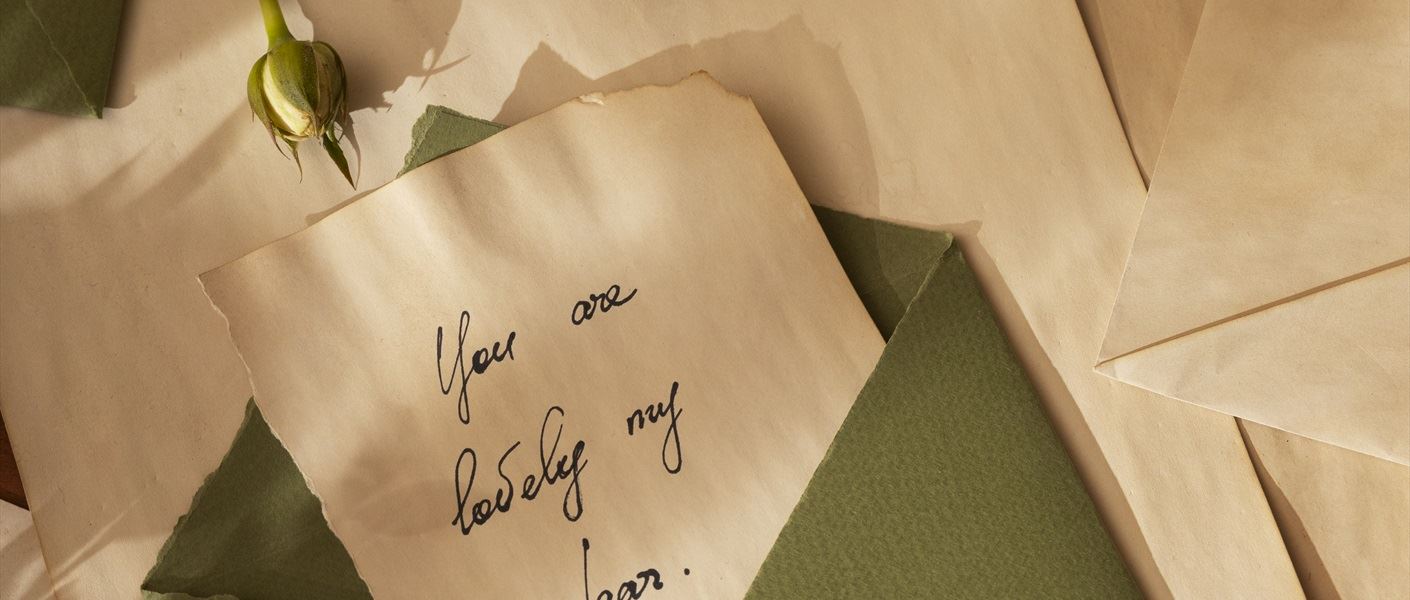 You are
lovely my
dear.